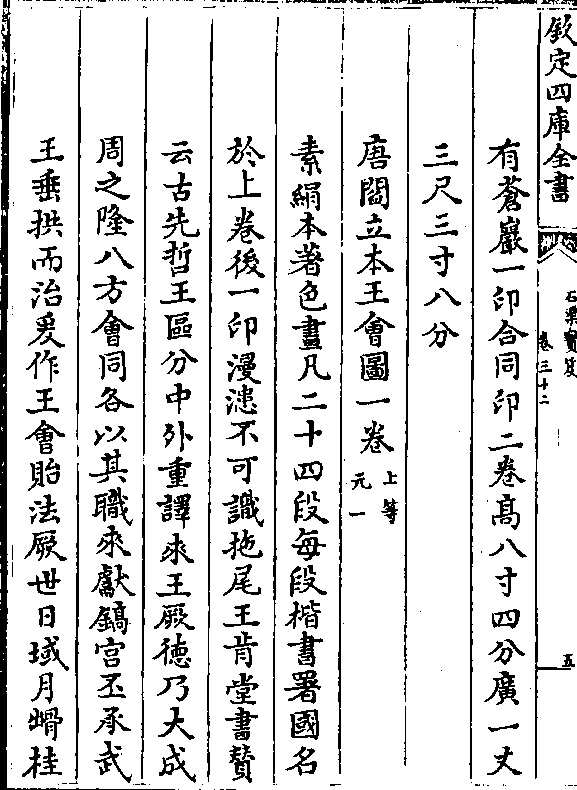 欽定四庫全書
石渠寶笈
卷三十二
五
有蒼巖一印合同印二卷高八寸四分廣一丈
三尺三寸八分
唐閻立本王會圖一卷
上等
元一
素絹本著色畫凡二十四段每段楷書署國名
於上卷後一印漫漶不可識拖尾王肯堂書贊
云古先哲王區分中外重譯來王厥德乃大成
周之隆八方會同各以其職來獻鎬宮丕承武
王垂拱而治爰作王會貽法厥世日域月𡾋桂